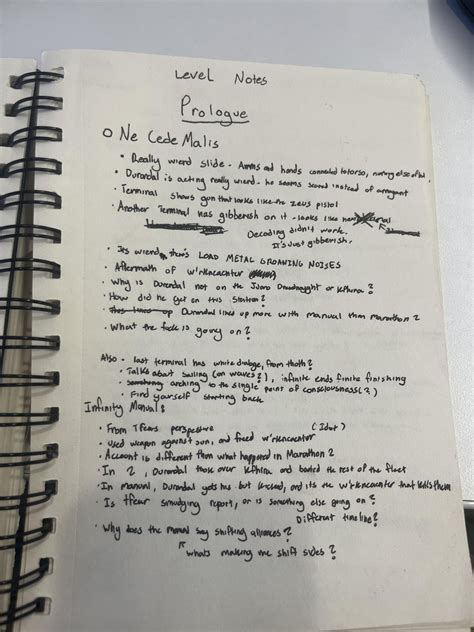 Level Notes
Prologue
o Ne Cede Malis
• Really wierd slide - Arms and hands connected to torso, nothing else
• Durandal is acting really wierd - he seems scared instead of arrogant
• Terminal shows gun that looks like the zeus pistol
• Another Terminal has gibberish on it - looks like
Decoding didn't work.
It's just gibberish.
• Its wierd, there's LOAD METAL GROANING NOISES
• Aftermath of W'rkncacnter
• Why is Durandal not on the Juno Dreadnaught or Lh'owon?
• How did he get on this station?
• Durandal lines up more with manual than Marathon 2
• What the fuck is going on?
Also • last terminal has white dialoge, from thoth?
• Talks about sailing (on waves?), infinite ends finite finishing
• arching to the single point of consciousness(?)
• Find yourself starting back
Infinity Manual:
• From Tfears perspective (Idiot)
• Used weapon against sun, and freed W'rkncacnter
• Account is different than what happened in Marathon 2
• In 2, Durandal took over Kfhira and boarded the rest of the fleet
• In manual, Durandal gets his butt kicked, and its the W'rkncacnter that kills them
• Is tfear smudging report, or is something else going on?
Different timeline?
• Why does the manual say shifting alliances?
↑ whats making me shift sides?